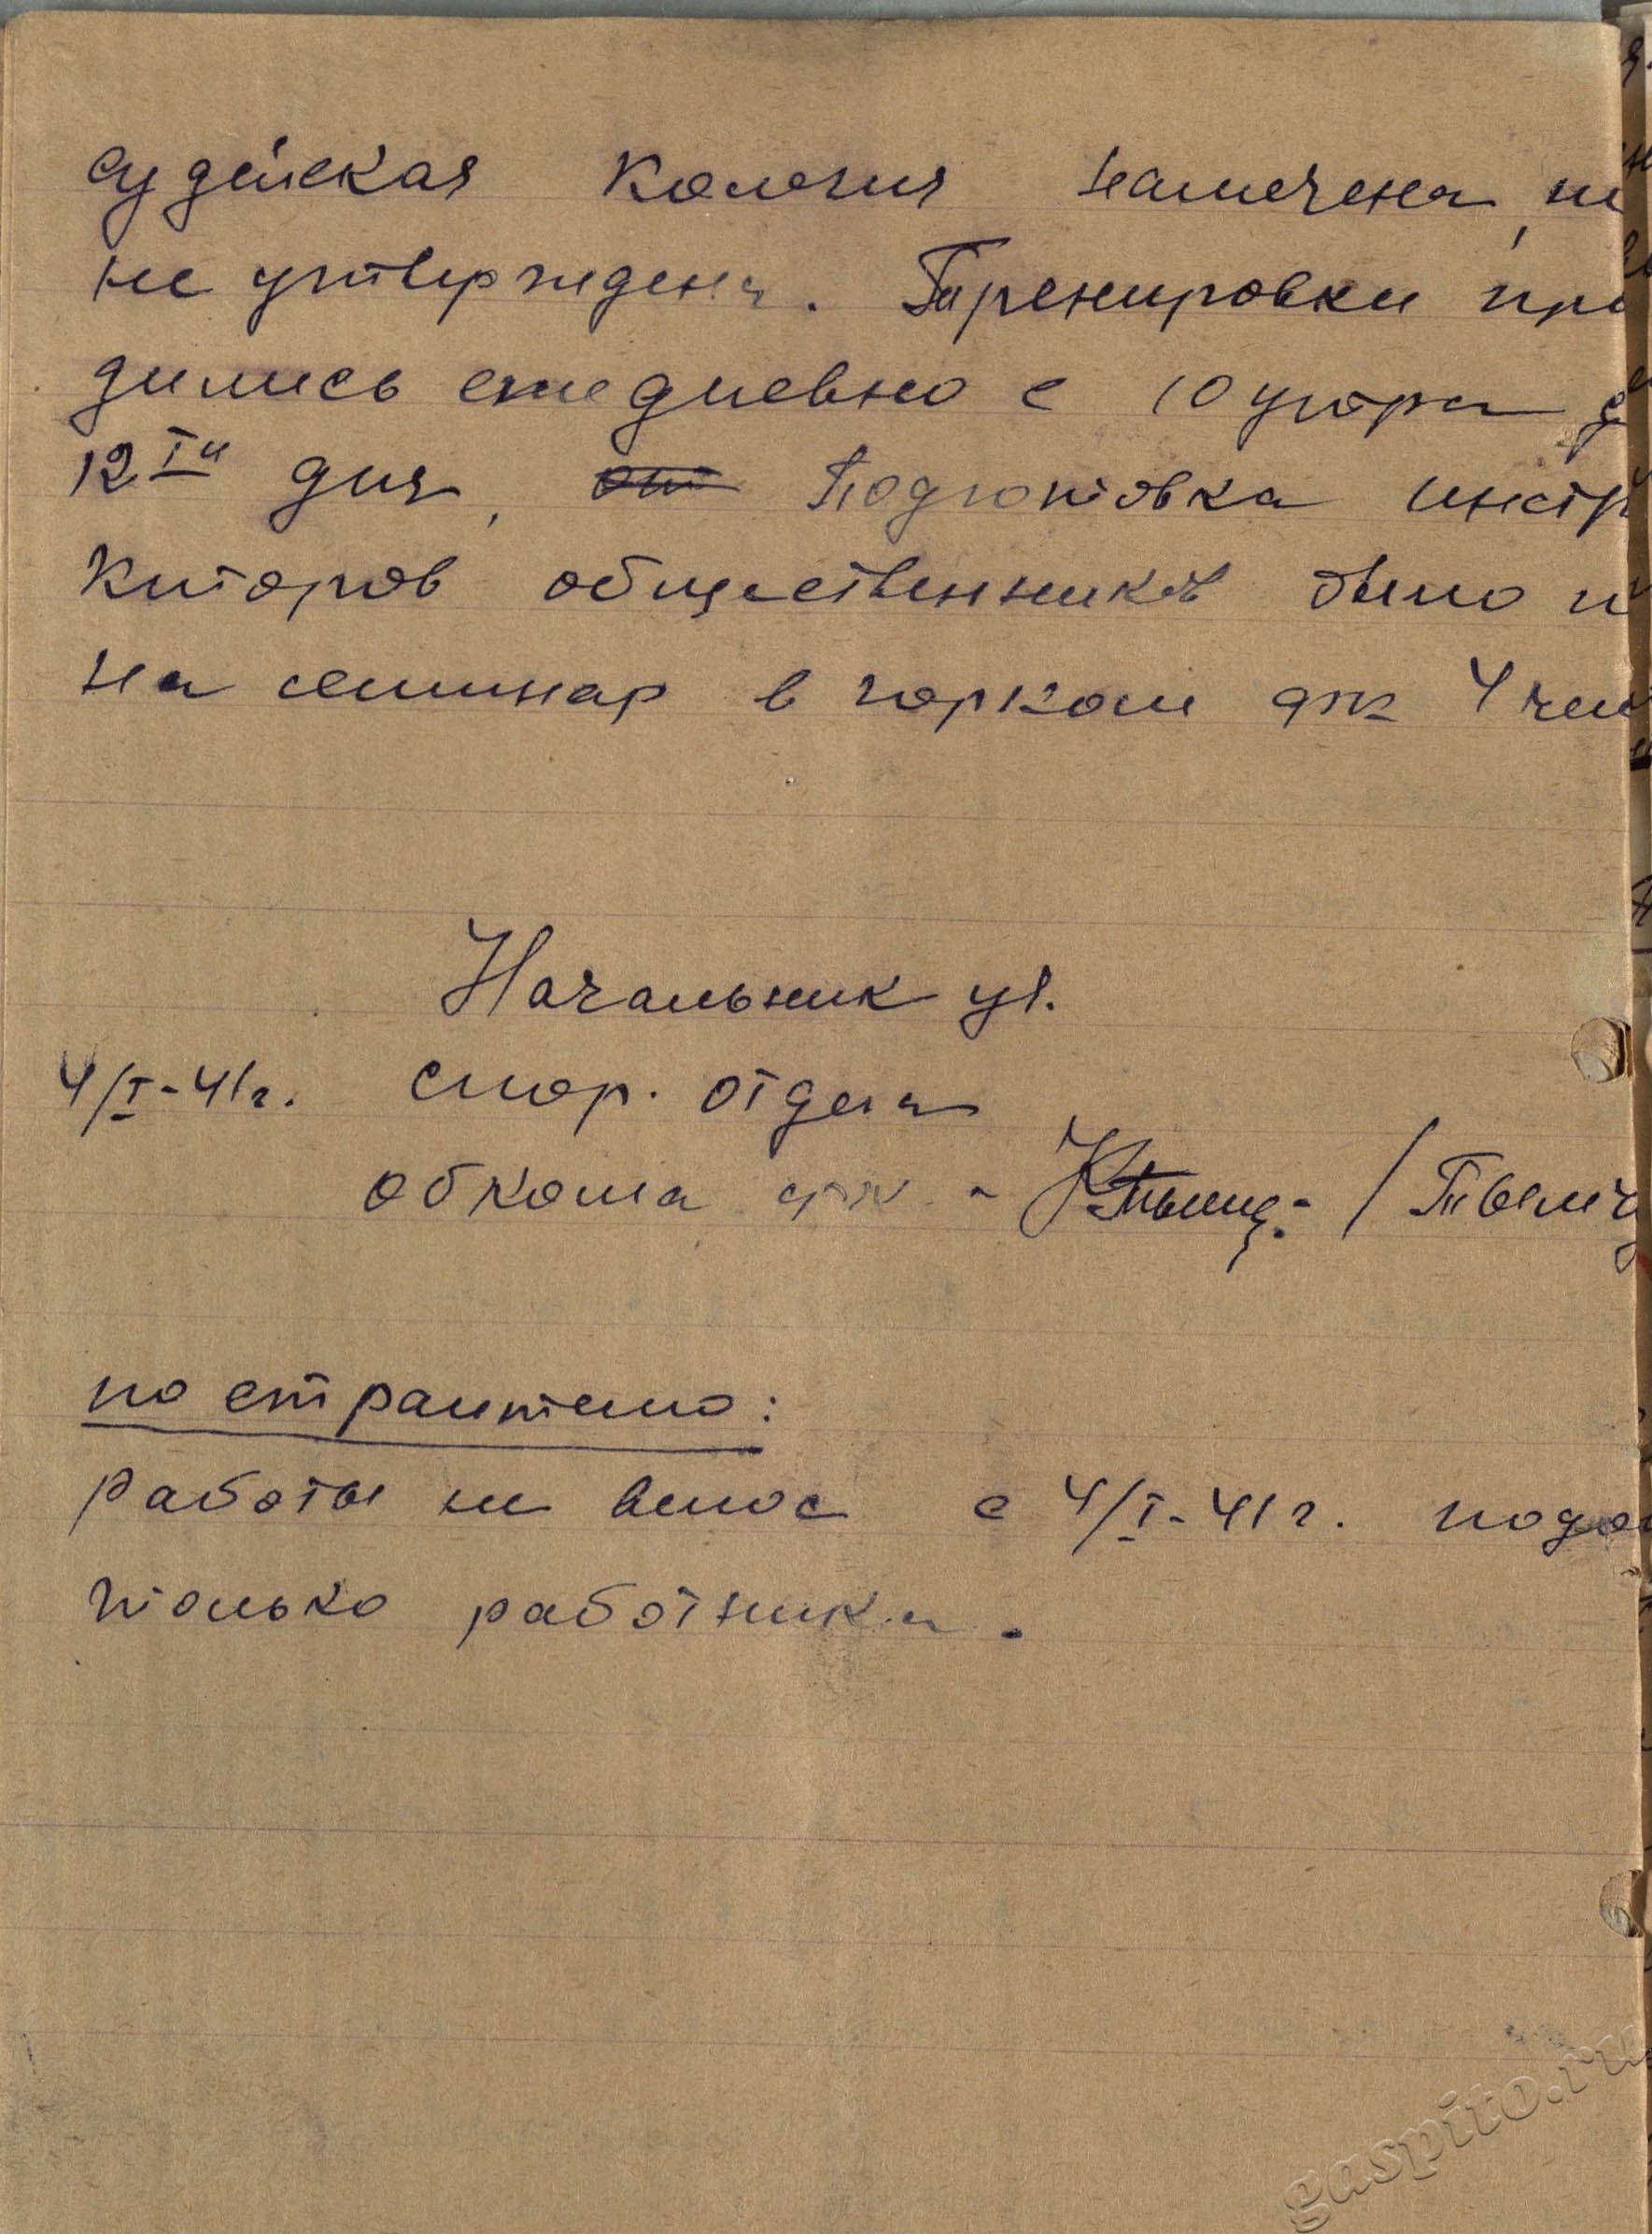 судейская Колегия намечена, н
не утверждена. Тренировки про
дились ежедневно с 10 утра д
12 Iи дня, Подготовка инстр
кторов общественников было п
на семинар в горком фк 4 чел
Начальник уч.
4/I-41г. спор. отдела
обкома фк -
по строительс:
Работы не велос с 4/I-41г. подо
только работники.
gaspito.ru